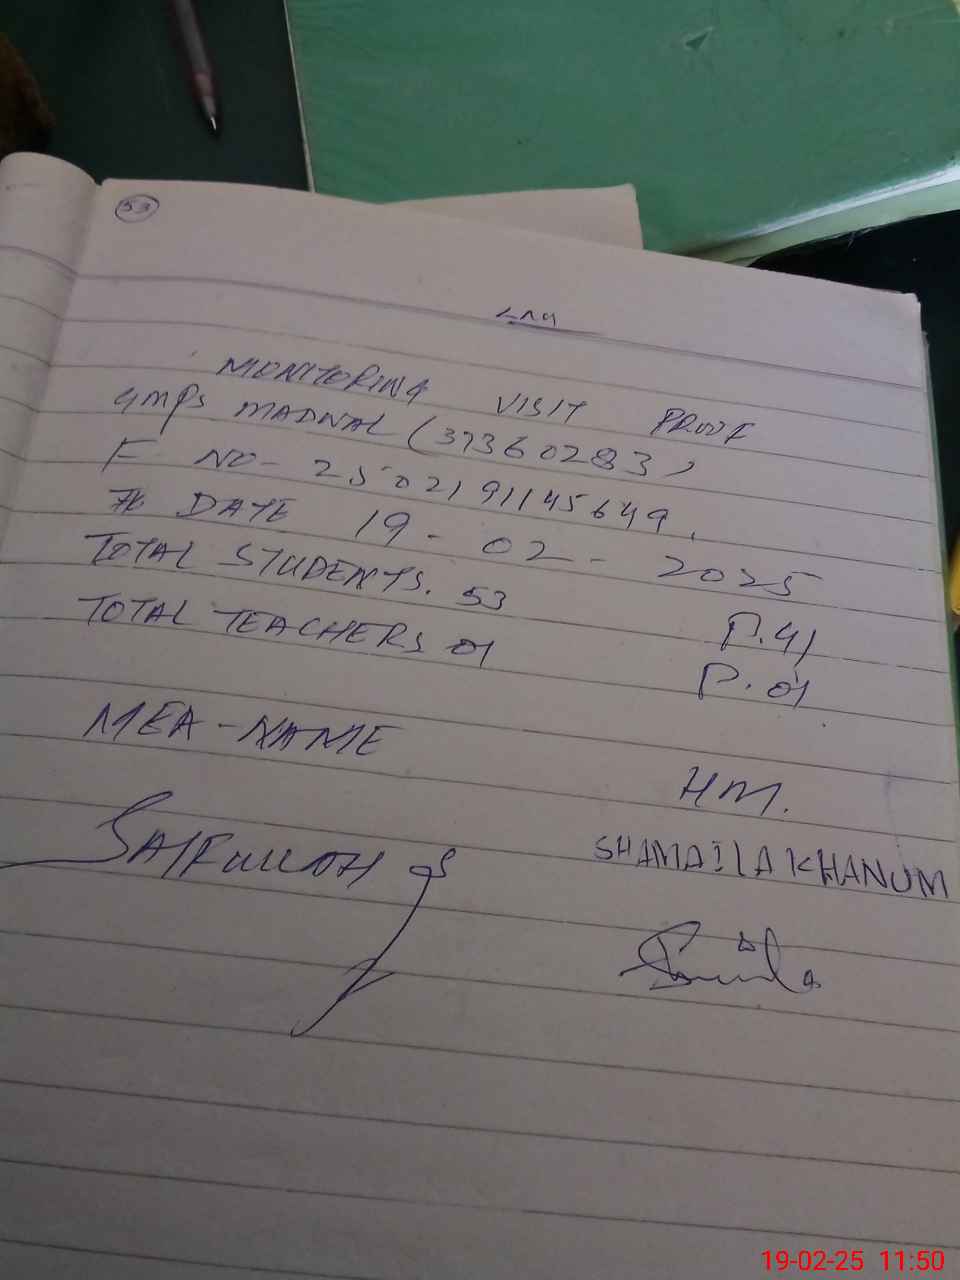 53
LND
MONITORING VISIT PROOF
GMPS MADNAL (37360283)
F NO- 2502191145649.
DATE 19-02-2025
TOTAL STUDENTS. 53 P.41
TOTAL TEACHERS 01 P.01
MEA-NAME
HM.
SAIFULLAH
SHAMAILA KHANUM
19-02-25 11:50